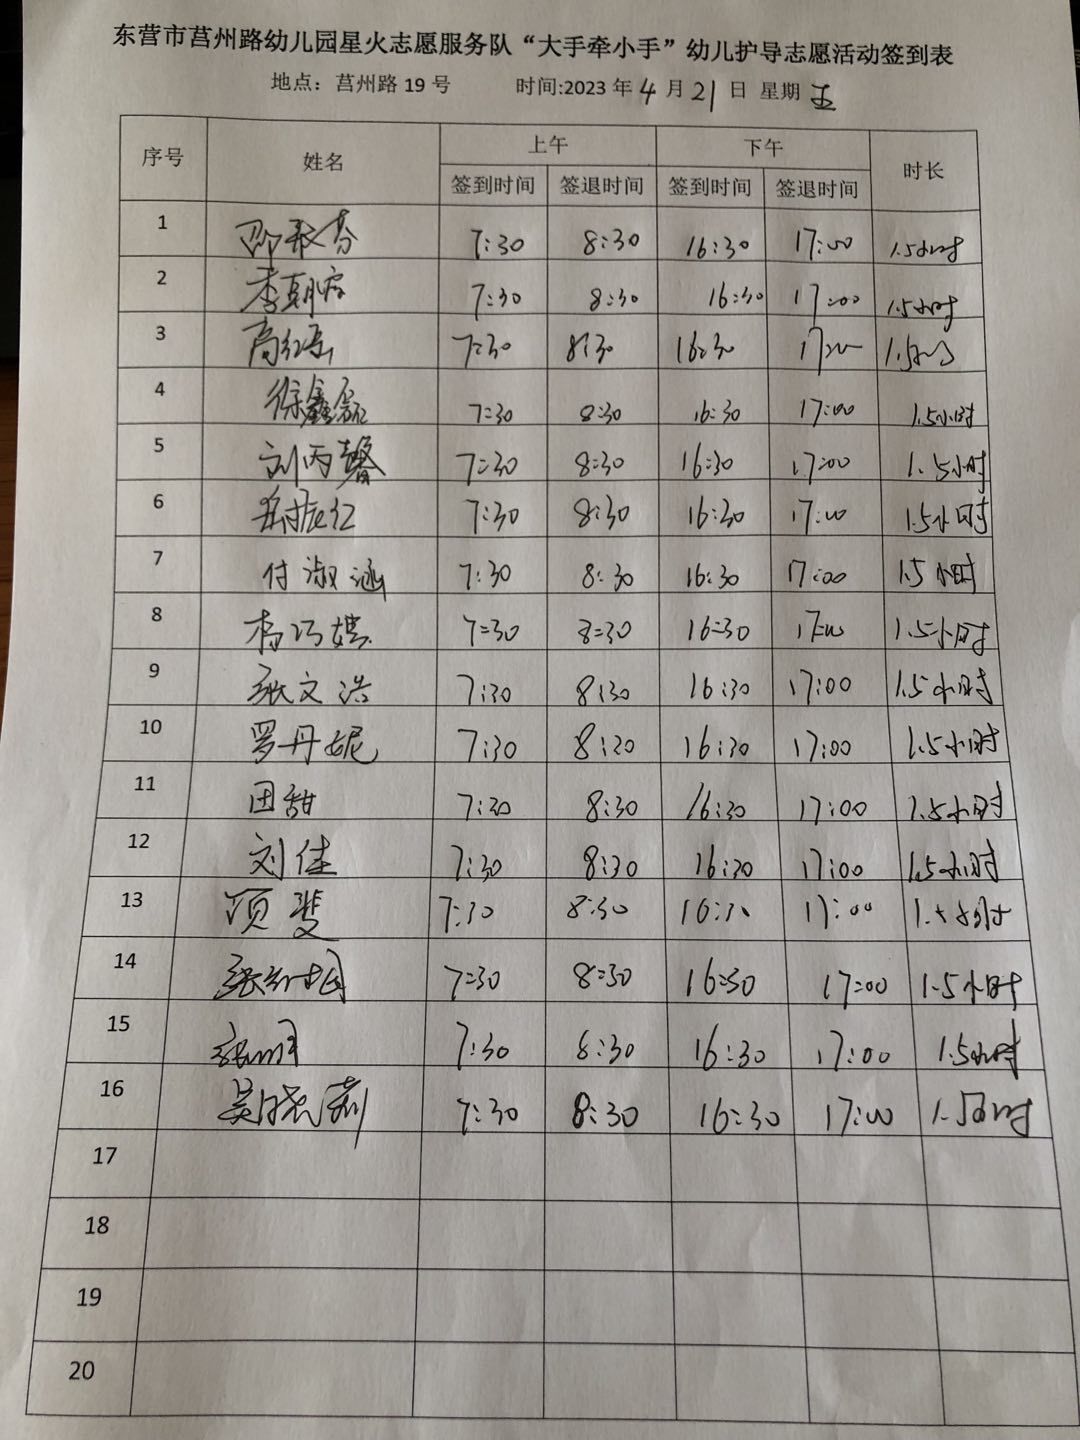 东营市莒州路幼儿园星火志愿服务队“大手牵小手”幼儿护导志愿活动签到表
地点：莒州路 19 号 时间:2023 年 4 月 21 日 星期 五
序号 姓名 上午 下午 时长
签到时间 签退时间 签到时间 签退时间
1 7:30 8:30 16:30 17:00 1.5小时
2 7:30 8:30 16:30 17:00 1.5小时
3 7:30 8:30 16:30 17:00 1.5小时
4 徐鑫磊 7:30 8:30 16:30 17:00 1.5小时
5 刘丙馨 7:30 8:30 16:30 17:00 1.5小时
6 7:30 8:30 16:30 17:00 1.5小时
7 付淑涵 7:30 8:30 16:30 17:00 1.5小时
8 7:30 8:30 16:30 17:00 1.5小时
9 张文浩 7:30 8:30 16:30 17:00 1.5小时
10 罗丹妮 7:30 8:30 16:30 17:00 1.5小时
11 田甜 7:30 8:30 16:30 17:00 1.5小时
12 刘佳 7:30 8:30 16:30 17:00 1.5小时
13 项斐 7:30 8:30 16:30 17:00 1.5小时
14 7:30 8:30 16:30 17:00 1.5小时
15 7:30 8:30 16:30 17:00 1.5小时
16 吴晓莉 7:30 8:30 16:30 17:00 1.5小时
17
18
19
20